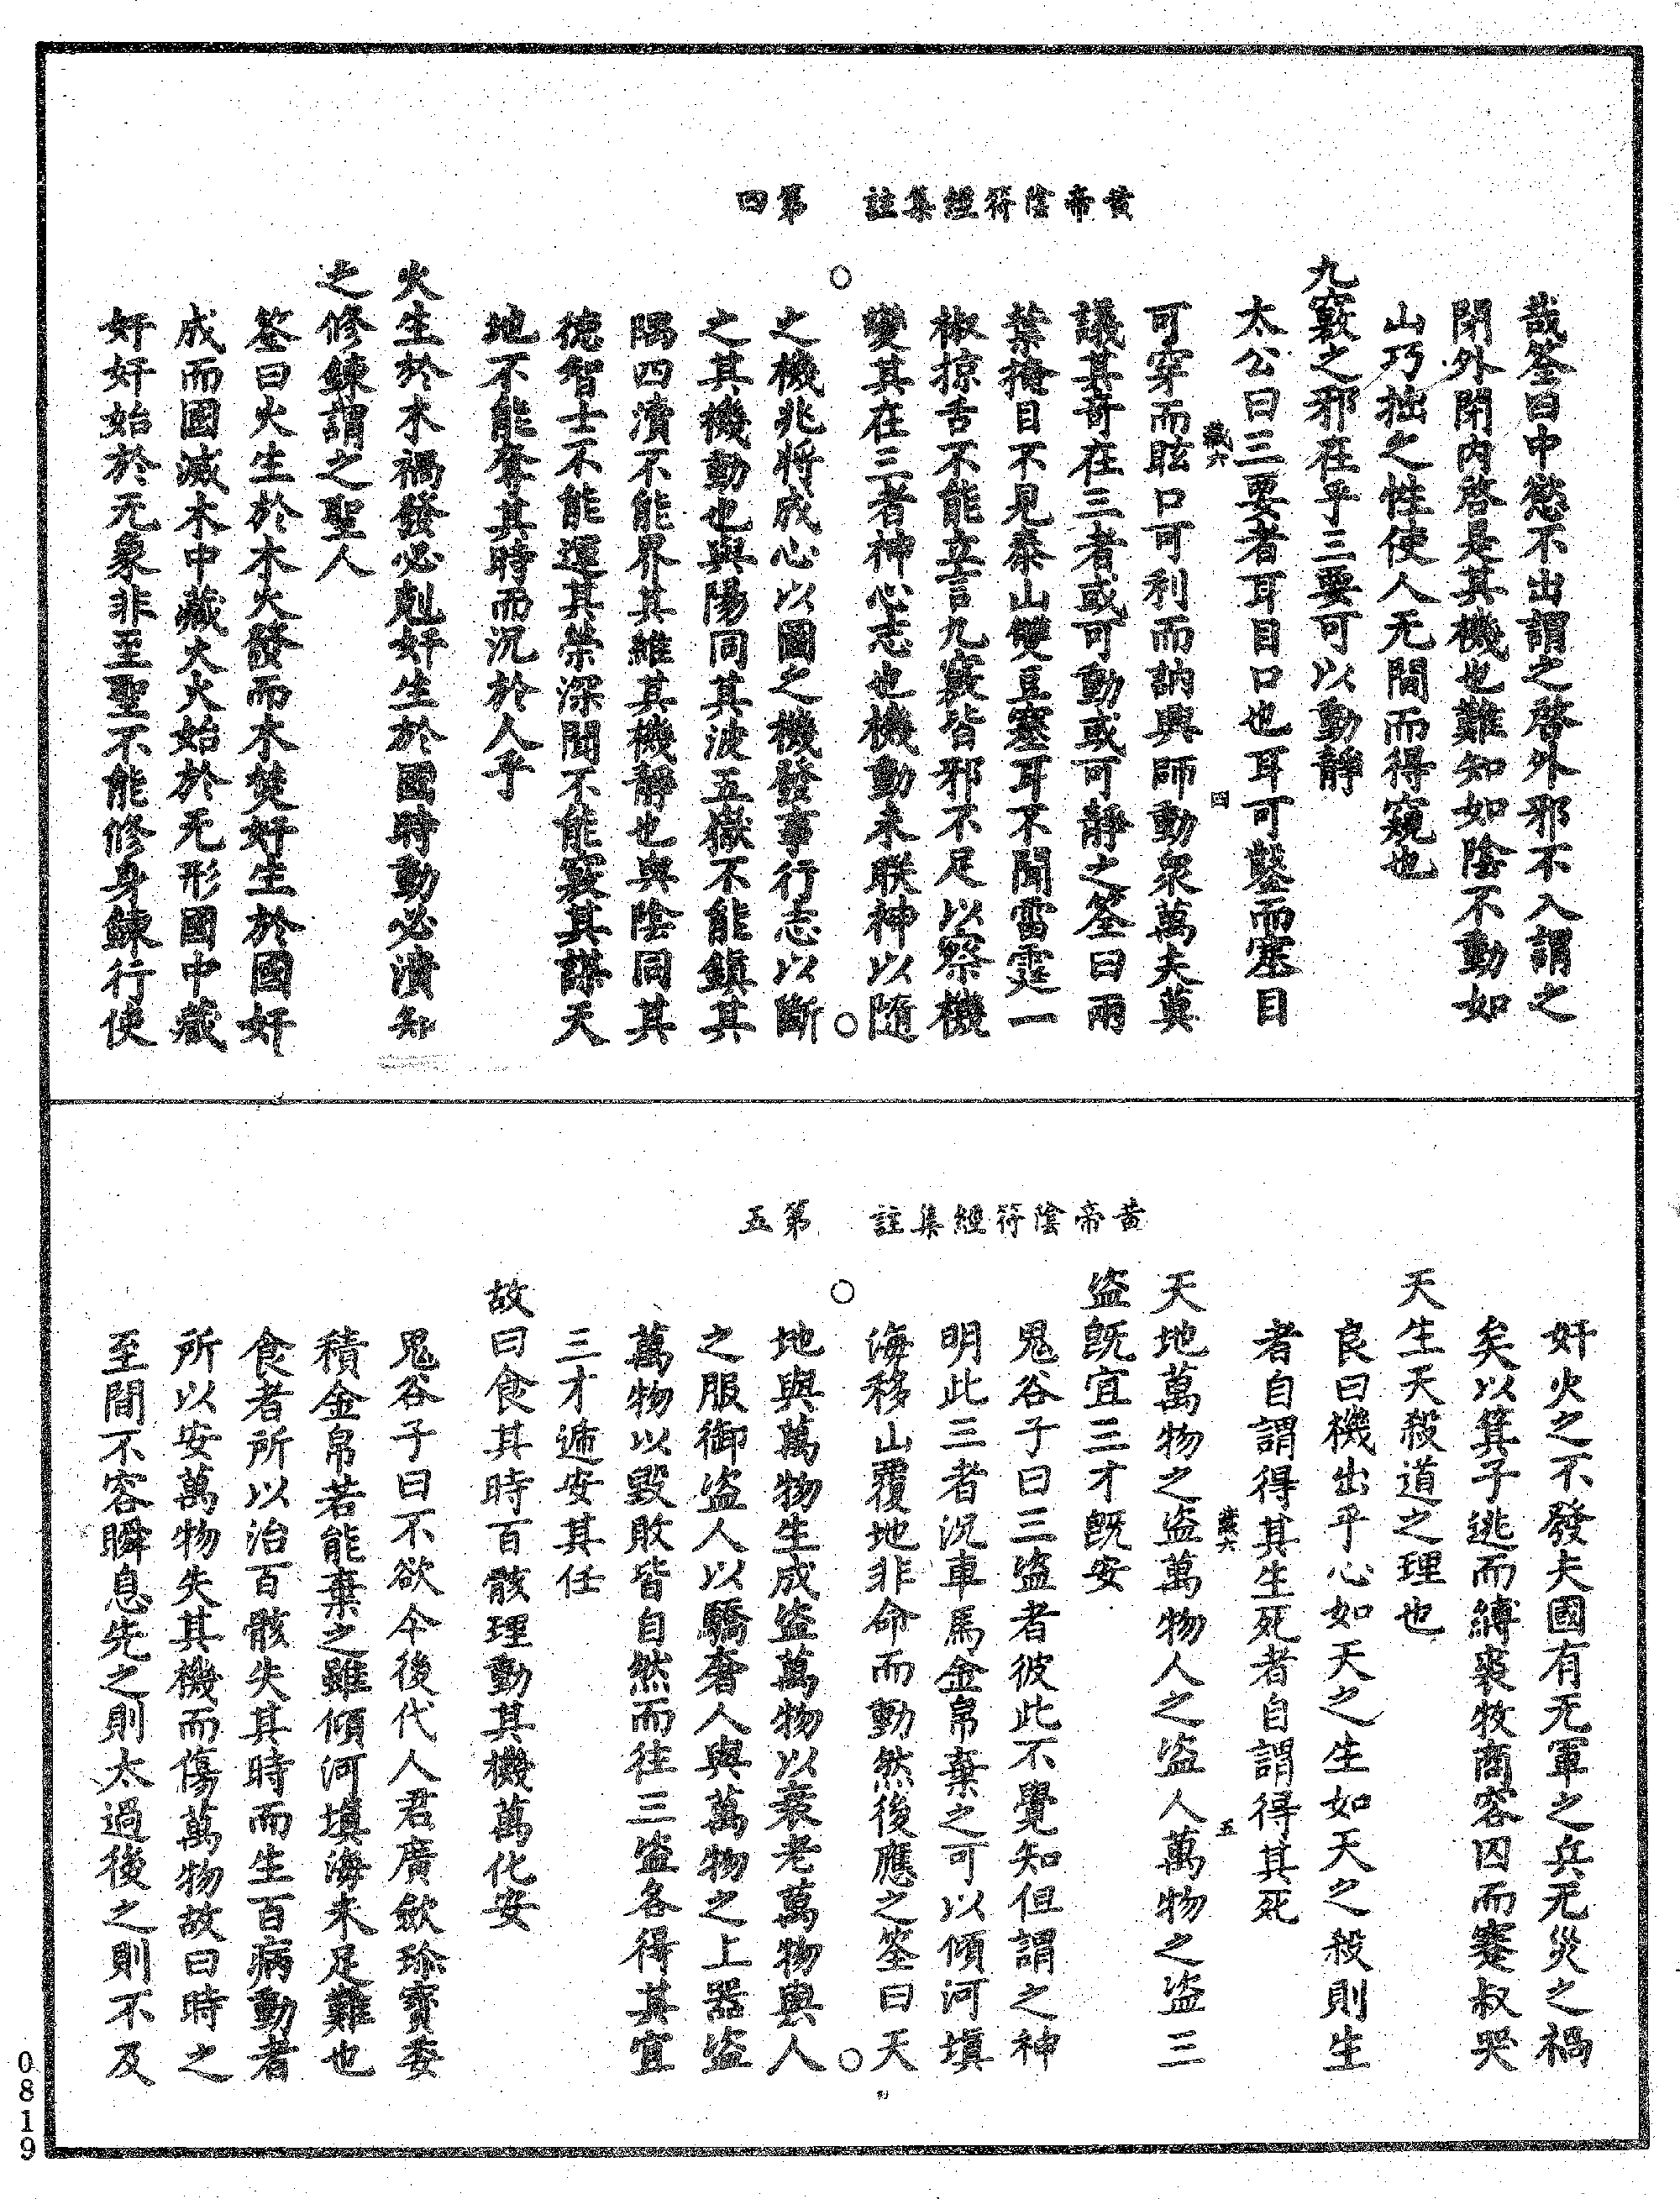 黃帝陰符經集註　第四
哉筌曰中慾不出謂之啓外邪不入謂之
閉外閉內啓是其機也難知如陰不動如
山巧拙之性使人无間而得窺也
九竅之邪在乎三要可以動靜
太公曰三要者耳目口也耳可鑿而塞目
可穿而眩口可利而訥興師動衆萬夫莫
議其奇在三者或可動或可靜之筌曰兩
葉掩目不見泰山雙豆塞耳不聞雷霆一
椒掠舌不能立言九竅皆邪不足以察機
變其在三者神心志也機動未朕神以隨
之機兆將成心以圖之機發事行志以斷
之其機動也與陽同其波五嶽不能鎮其
隅四瀆不能界其維其機靜也與陰同其
德智士不能運其榮深聞不能竅其謀天
地不能奪其時而況於人乎
火生於木禍發必剋奸生於國時動必潰知
之修鍊謂之聖人
筌曰火生於木火發而木焚奸生於國奸
成而國滅木中藏火火始於无形國中藏
奸奸始於无象非至聖不能修身鍊行使
黃帝陰符經集註　第五
奸火之不發夫國有无軍之兵无災之禍
矣以箕子逃而縛裘牧商容囚而蹇叔哭
天生天殺道之理也
良曰機出乎心如天之生如天之殺則生
者自謂得其生死者自謂得其死
天地萬物之盜萬物人之盜人萬物之盜三
盜既宜三才既安
鬼谷子曰三盜者彼此不覺知但謂之神
明此三者況車馬金帛棄之可以傾河填
海移山覆地非命而動然後應之筌曰天
地與萬物生成盜萬物以衰老萬物與人
之服御盜人以驕奢人與萬物之上器盜
萬物以毀敗皆自然而往三盜各得其宜
三才遞安其任
故曰食其時百骸理動其機萬化安
鬼谷子曰不欲令後代人君廣歛珍寶委
積金帛若能棄之雖傾河填海未足難也
食者所以治百骸失其時而生百病動者
所以安萬物失其機而傷萬物故曰時之
至間不容瞬息先之則太過後之則不及
0819